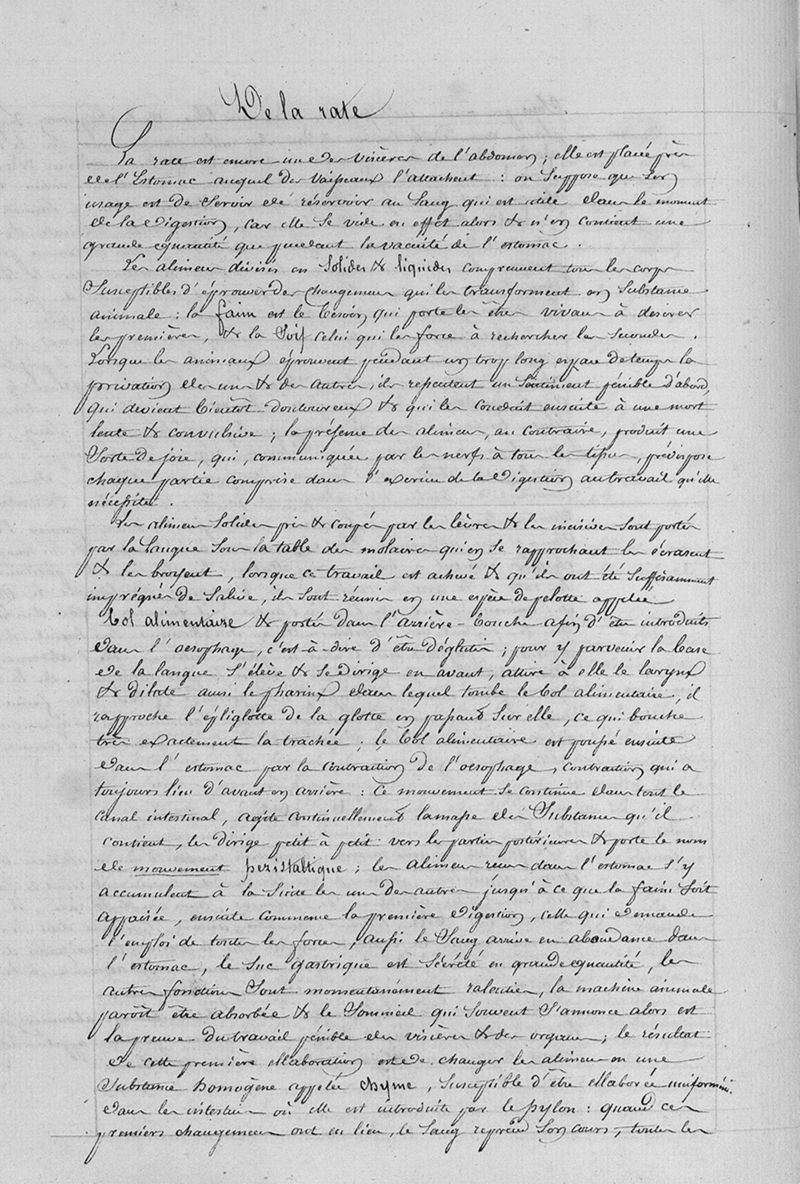 De la rate
La rate est encore un des viscères de l'abdomen ; elle est placée près
de l'Estomac auquel des vaisseaux l'attachent : on suppose que son
usage est de servir de réservoir au sang qui est utile dans le moment
de la digestion, car elle se vide en effet alors & n'en contient une
grande quantité que pendant la vacuité de l'estomac.
Les alimens divisés en solides & liquides comprennent tous les corps
susceptibles d'éprouver des changemens qui les transforment en substance
animale : la faim est le besoin qui porte les êtres vivans à dévorer
les premières, & la soif celui qui les force à rechercher les secondes.
Lorsque les animaux éprouvent pendant un trop long espace de temps la
privation des uns & des autres, ils ressentent un sentiment pénible d'abord,
qui devient bientôt douloureux & qui les conduit ensuite à une mort
lente & convulsive ; la présence des alimens, au contraire, produit une
sorte de joie, qui, communiquée par les nerfs à tous les tissus, prédispose
chaque partie comprise dans l'exercice de la digestion au travail qu'elle
nécessite.
Les alimens solides pris & coupés par les lèvres & les incisives sont portés
par la langue sous la table des molaires qui en se rapprochant les écrasent
& les broyent, lorsque ce travail est achevé & qu'ils ont été suffisamment
imprégnés de salive, ils sont réunis en une espèce de pelotte appelée
bol alimentaire & portés dans l'arrière-bouche afin d'être introduits
dans l'oesophage, c'est-à-dire d'être déglutis ; pour y parvenir la base
de la langue s'élève & se dirige en avant, attire à elle le larynx
& dilate aussi le pharinx dans lequel tombe le bol alimentaire, il
rapproche l'épiglotte de la glotte en passant sur elle, ce qui bouche
très exactement la trachée ; le bol alimentaire est poussé ensuite
dans l'estomac par la contraction de l'oesophage, contraction qui a
toujours lieu d'avant en arrière : ce mouvement se continue dans tout le
canal intestinal, agite continuellement la masse des substances qu'il
contient, les dirige petit à petit vers les parties postérieures & porte le nom
de mouvement peristaltique ; les alimens reçus dans l'estomac s'y
accumulent à la suite les uns des autres jusqu'à ce que la faim soit
appaisée, ensuite commence la première digestion, celle qui demande
l'emploi de toutes les forces, aussi le sang arrive en abondance dans
l'estomac, le suc gastrique est sécrété en grande quantité, les
autres fonctions sont momentanément ralenties, la machine animale
paroît être absorbée & le sommeil qui souvent s'annonce alors est
la preuve du travail pénible des viscères & des organes ; le résultat
de cette première ellaboration est de changer les alimens en une
substance homogène appelée chyme, susceptible d'être ellaborée uniformém.
dans les intestins où elle est introduite par le pylore : quand ces
premiers changemens ont eu lieu, le sang reprend son cours, toutes les